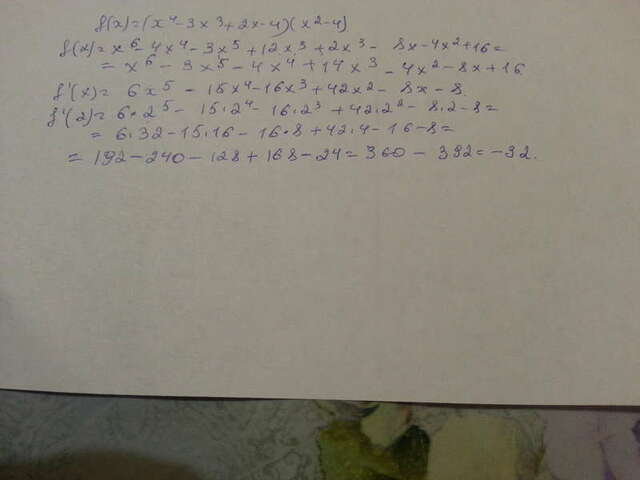 f(x)=(x⁴-3x³+2x-4)(x²-4)
f(x)=x⁶-4x⁴-3x⁵+12x³+2x³-8x-4x²+16=
=x⁶-3x⁵-4x⁴+14x³-4x²-8x+16
f'(x)=6x⁵-15x⁴-16x³+42x²-8x-8.
f'(2)=6·2⁵-15·2⁴-16·2³+42·2²-8·2-8=
=6·32-15·16-16·8+42·4-16-8=
=192-240-128+168-24=360-392=-32.